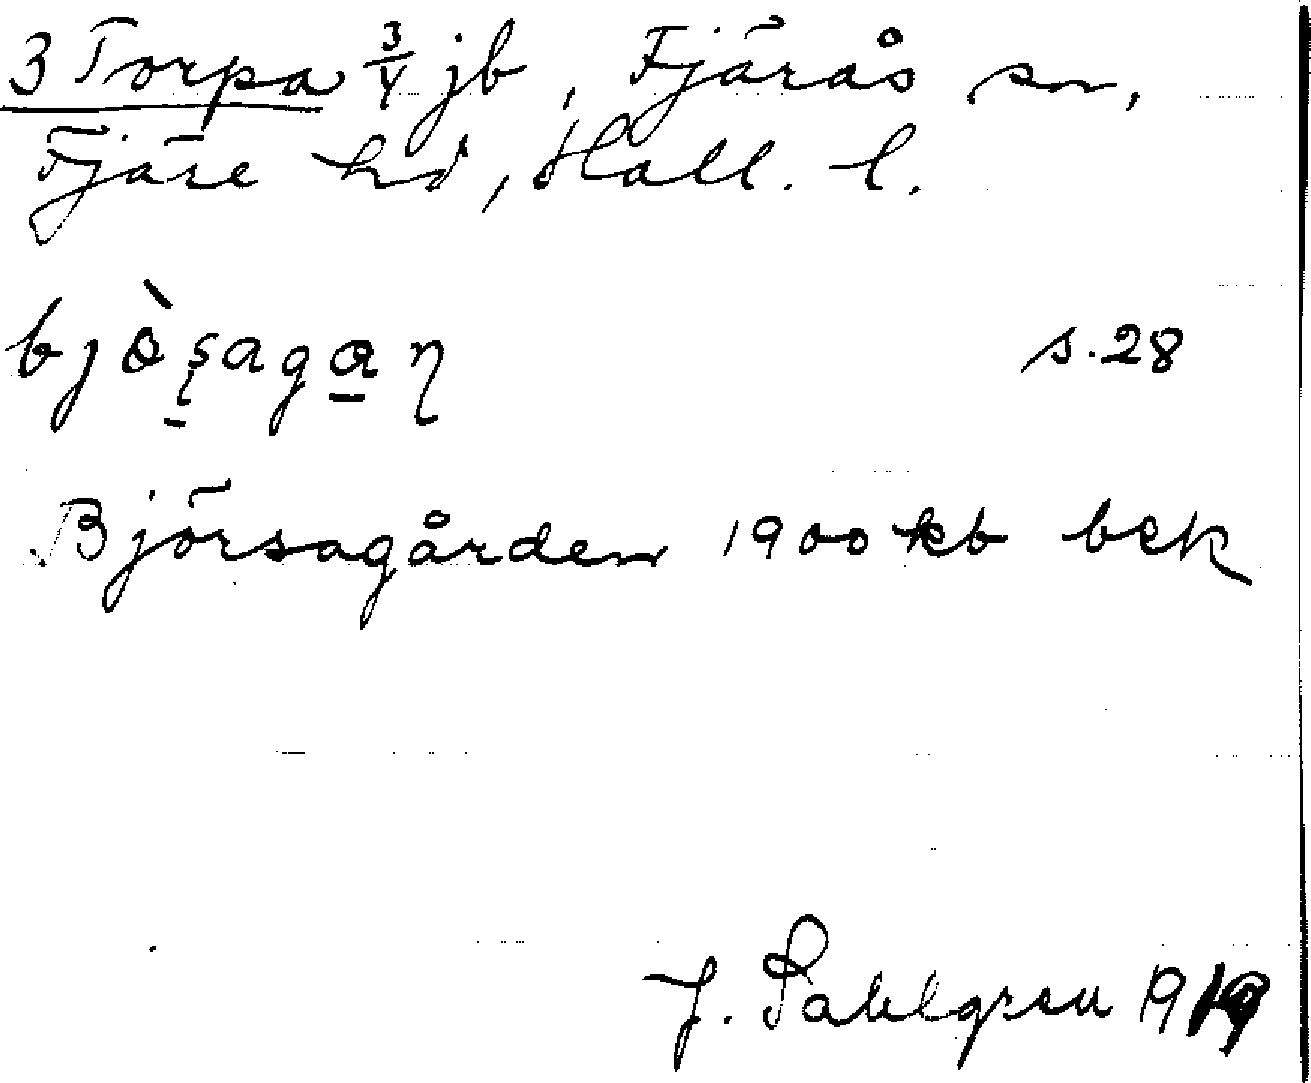 3 Torpa 3/4 jb, Fjärås sn,
Fjäre hd, Hall. l.
bjòşagaŋ s.28
Björsagården 1900 kb bek
J. Sahlgren 1919